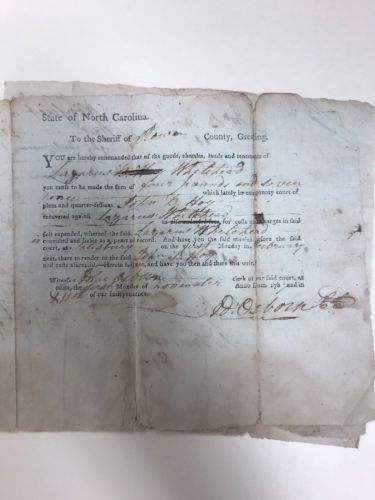 State of North Carolina.
To the Sheriff of Rowan County, Greeting.
YOU are hereby commanded that of the goods, chattles, lands and tenements of
Lazarus Whitehead
you cause to be made the sum of four pounds and seven
pence which lately in our county court of
pleas and quarter-sessions John B Hoy
recovered against Lazarus Whitehead
as also for costs and charges in said
suit expended, whereof the said Lazarus Whitehead
convicted and liable as appears of record. And have you the said monies before the said
court, at Salisbury on the first Monday in February
next, there to render to the said John B Hoy
and costs aforesaid.—Herein fail not, and have you then and there this writ.
Witness Clerk of our said court, at
office, the first Monday of November Anno Dom. 178 and in
of our Independence.
D. Osborn